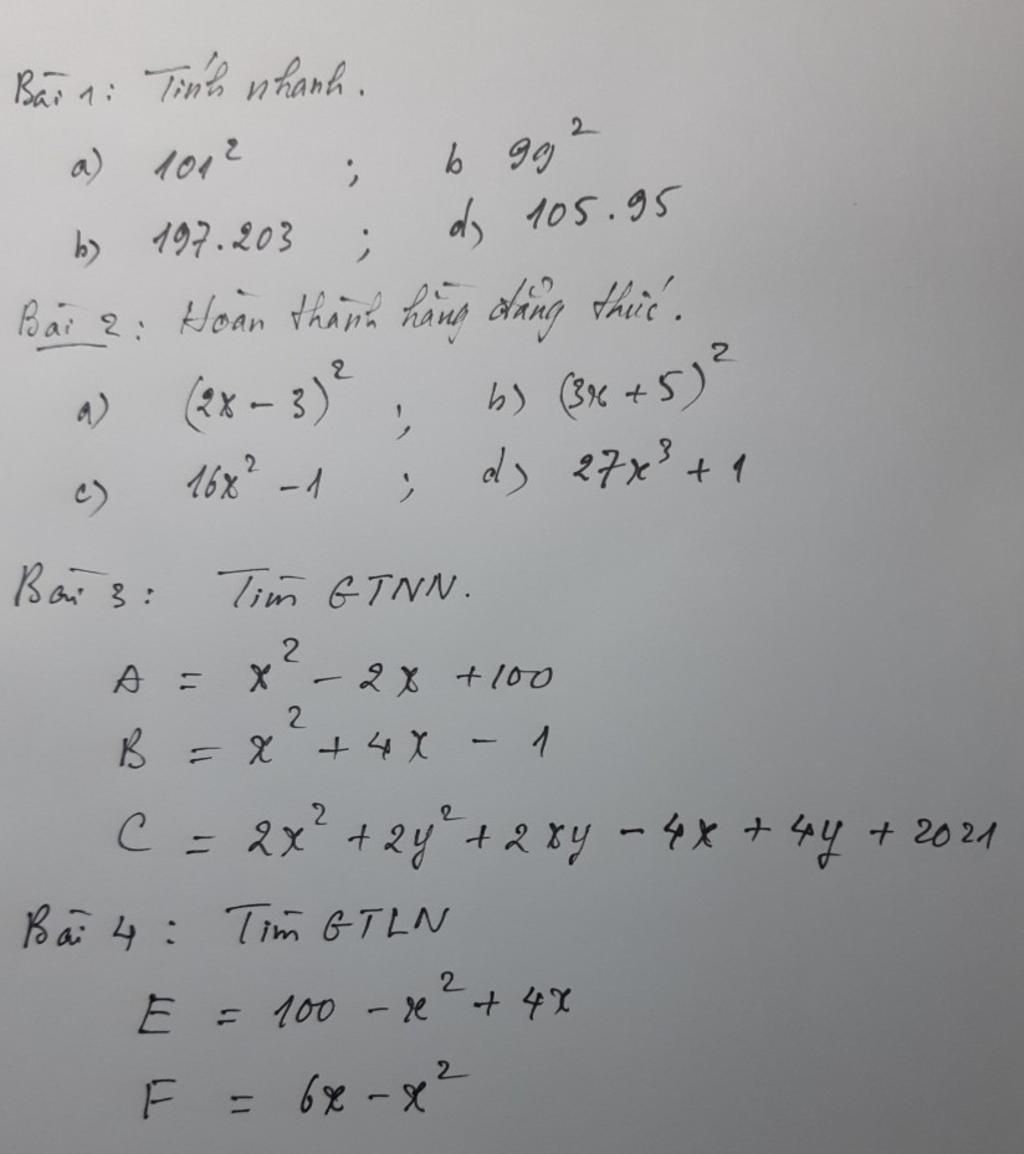 Bài 1: Tính nhanh.
a) 101² ; b 99²
b) 197.203 ; d) 105.95
Bài 2: Hoàn thành hằng đẳng thức.
a) (2x - 3)² ; b) (3x + 5)²
c) 16x² - 1 ; d) 27x³ + 1
Bài 3: Tìm GTNN.
A = x² - 2x + 100
B = x² + 4x - 1
C = 2x² + 2y² + 2xy - 4x + 4y + 2021
Bài 4: Tìm GTLN
E = 100 - x² + 4x
F = 6x - x²